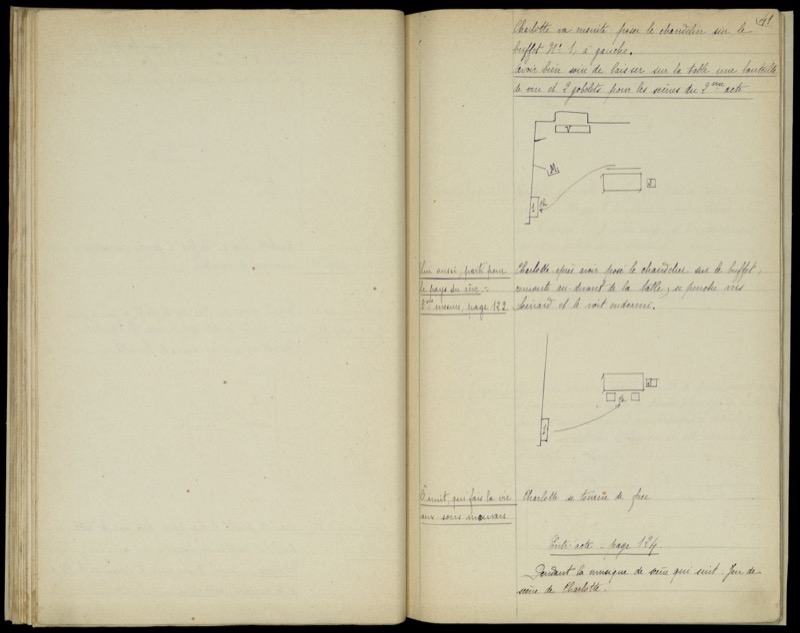 41
Charlotte va ensuite poser le chandelier sur le
buffet Nº 1, à gauche.
Avoir bien soin de laisser sur la table une bouteille
de vin et 2 gobelets pour les scènes du 2me acte
V
1
Ch
Lui aussi, parti pour
le pays du rêve -
mesure, page 122
Charlotte après avoir posé le chandelier sur le buffet,
remonte en devant de la table, se penche vers
et le voit endormi.
Ch
Ô nuit, qui fais la vie
aux sons mauvais
Charlotte se tourne de face
Entr'acte - page 124.
Pendant la musique de scène qui suit - Jeu de
scène de Charlotte.